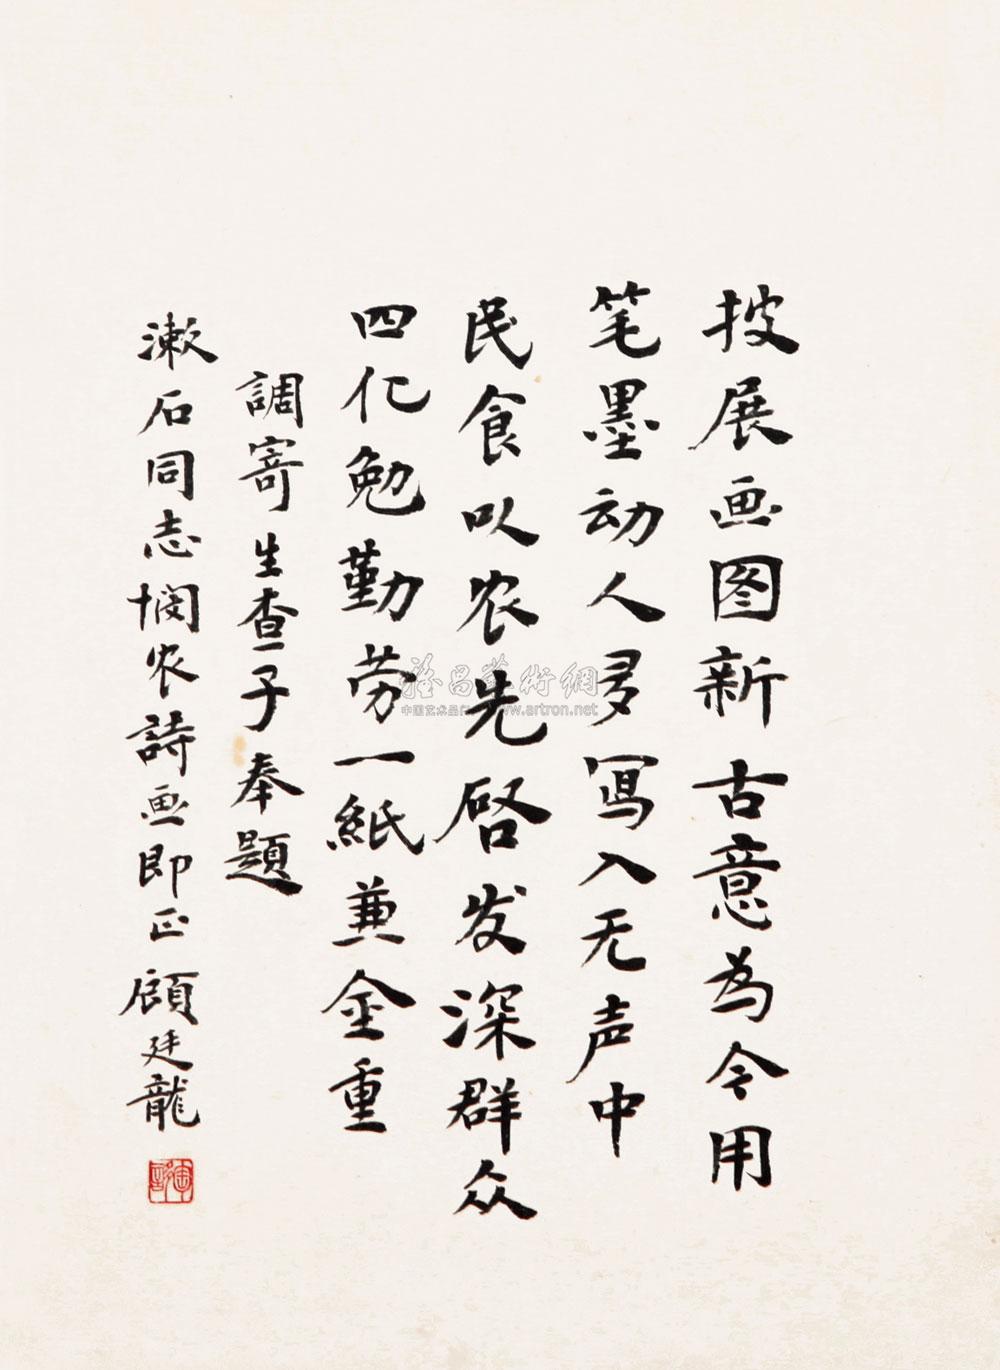 披展画图新古意为今用
笔墨动人多写入无声中
民食以农先啓发深群众
四化勉勤劳一紙兼金重
調寄生查子奉題
漱石同志悯农詩画即正顧廷龍
雅昌藝術網
中国艺术品门户www.artron.net